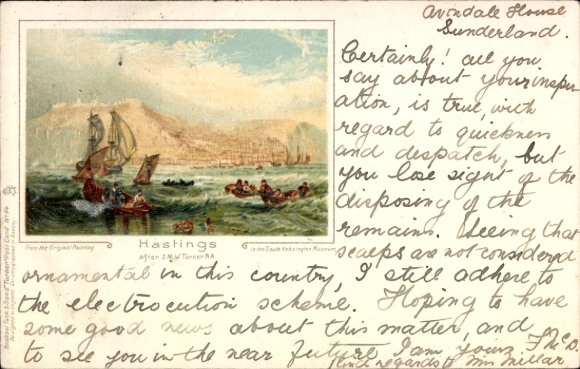 Avondale House
Sunderland.
Certainly! all you
say about your inspir
ation, is true, with
regard to quickness
and despatch, but
you lose sight of the
disposing of the
remains. Seeing that
scalps are not considered
ornamental in this country, I still adhere to
the electrocution scheme. Hoping to have
some good news about this matter, and
to see you in the near future I am yours J McD.
Kind regards to Mrs Millar
From the Original Painting
Hastings
after J.M.W Turner R.A.
In the South Kensington Museum
Raphael Tuck & Sons' "Turner" Post Card No